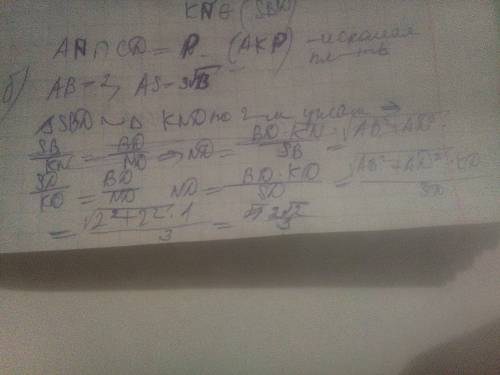 KN ∈ (SBD)
AN ∩ CD = P (AKP) - искомая пл-ть
б) AB = 2, AS = 3√3
△SBD ~ △ KND по 2-м углам ⇒
SB/KN = BD/ND ⇒ ND = BD · KN / SB = √AB²+AD² ·
SD/KD = BD/ND ND = BD · KD / SD = √AB²+AD² · KD / SD
= √2²+2² · 1 / 3 = 2√2 / 3